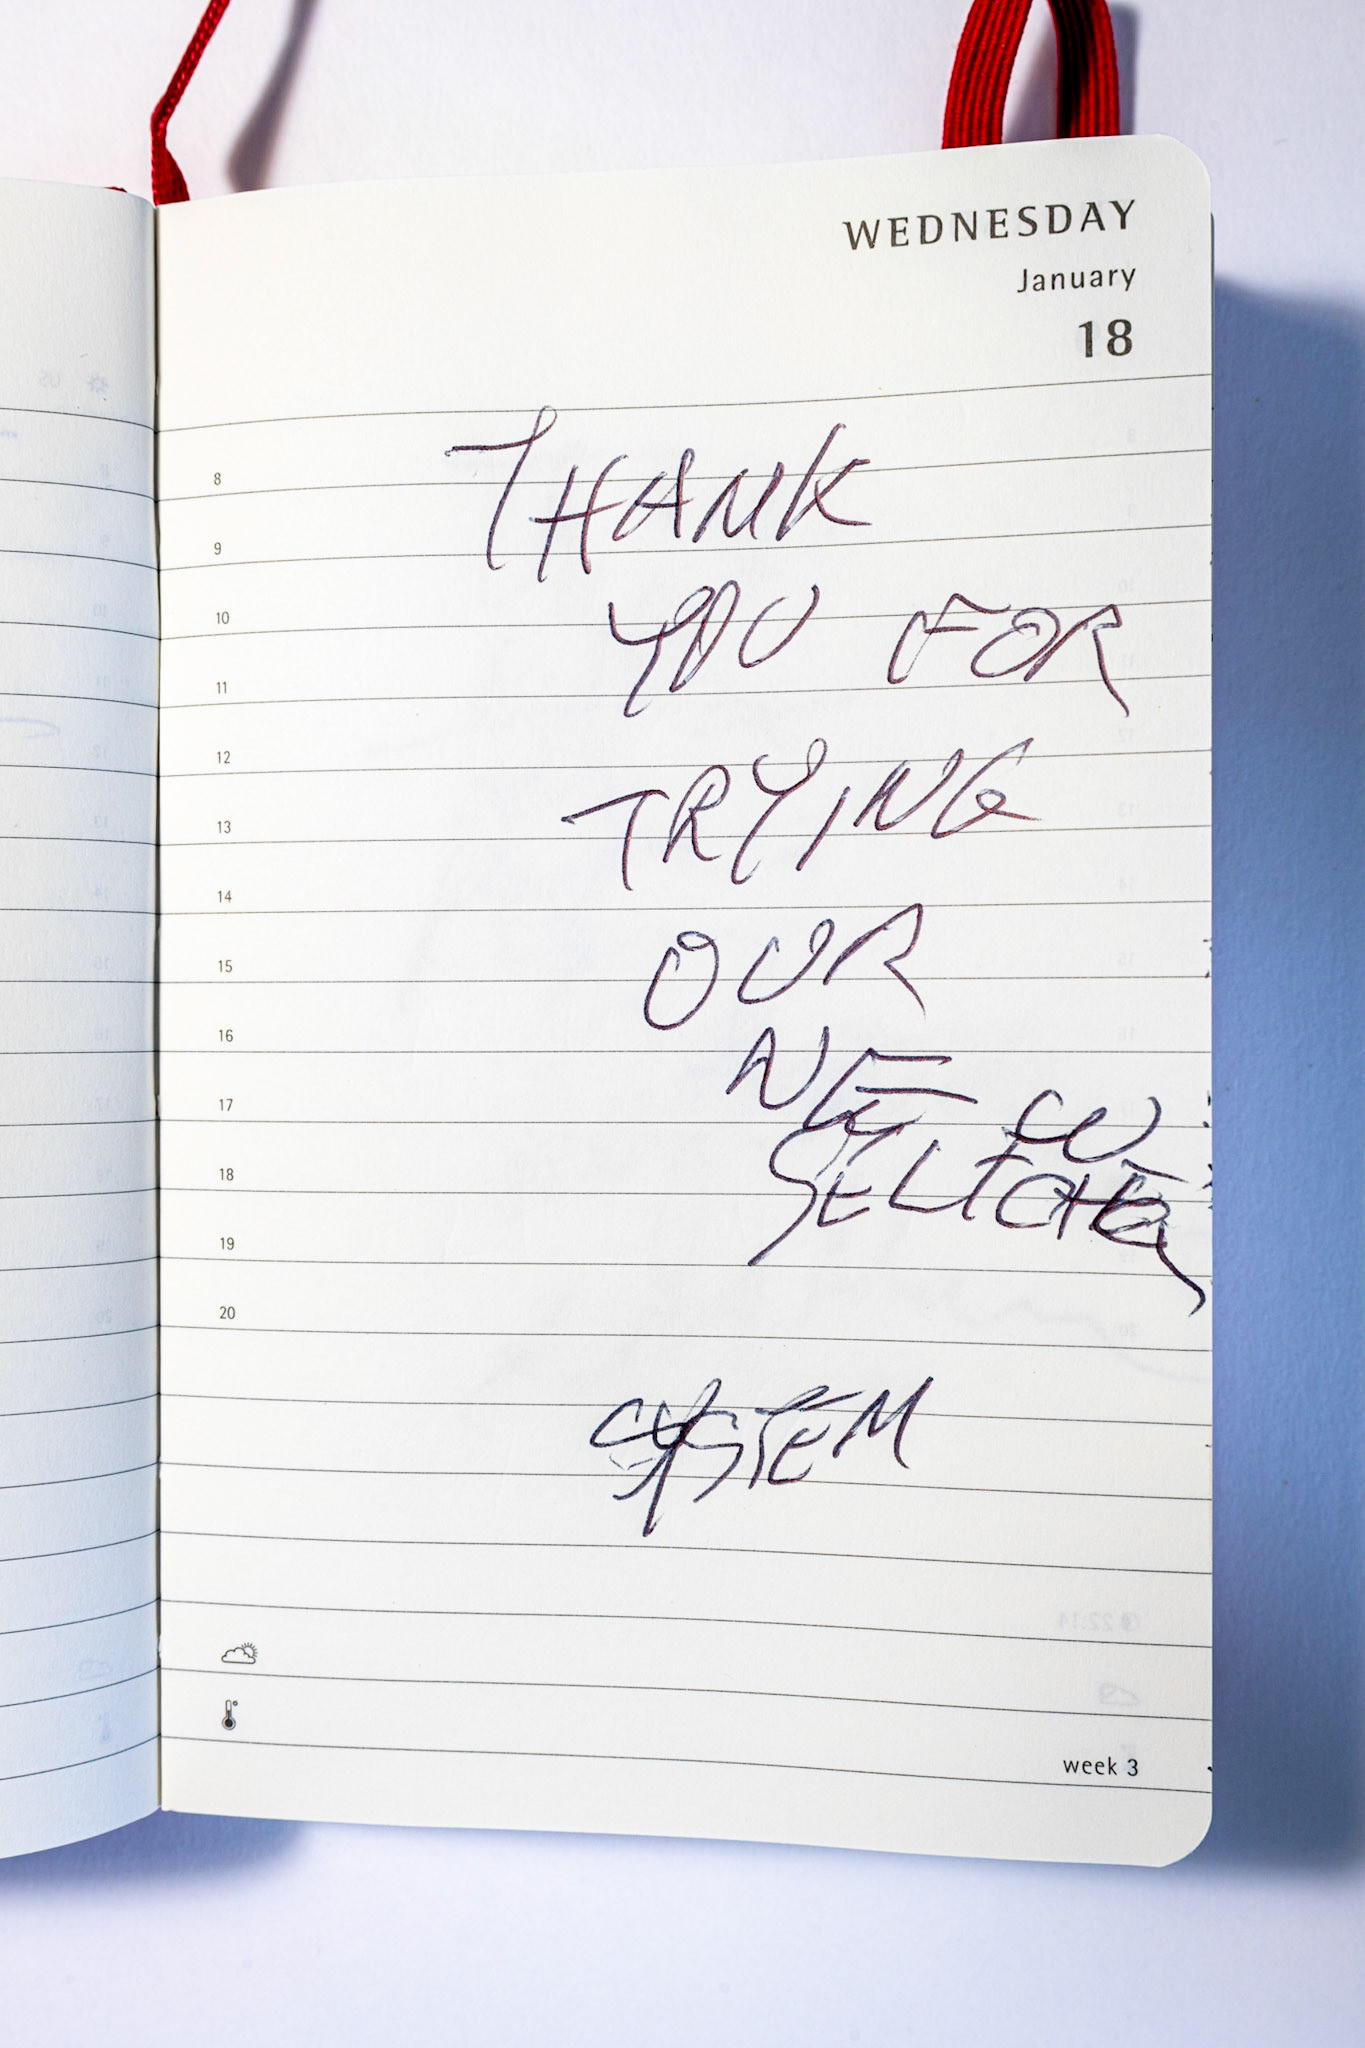 WEDNESDAY
January
18
THANK
8
9
YOU FOR
10
11
TRYING
12
13
14
OUR
15
NEW
16
17
18
19
20
SYSTEM
week 3